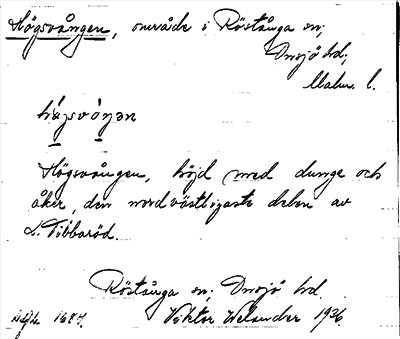 Högsvången, område i Röstånga sn;
Onsjö hd;
Malm. l.
Högsvången, höjd med dunge och
åker, den nordvästligaste delen av
L. Tibbaröd.
Röstånga sn; Onsjö hd.
Viktor Welander 1936.